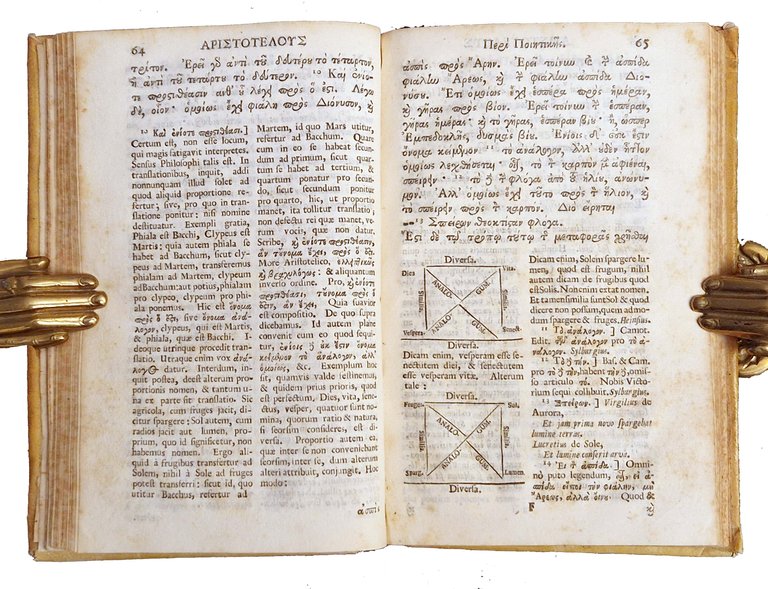 64 ΑΡΙΣΤΟΤΕΛΟΥΣ
τρίτον. Ἐρεῖ γὸ ἀντὶ τοῦ δευτέρου τὸ τέταρτον,
ἢ ἀντὶ τοῦ τετάρτου τὸ δεύτερον. 10 Καὶ ἐνίο-
τε προστιθέασιν ἀνθ' οὗ λέγει πρὸς ὅ ἐστι. Λέγω
δὲ, οἷον· ὁμοίως ἔχει φιάλη πρὸς Διόνυσον, καὶ
10 Καὶ ἐνίοτε προστιθέασι.]
Certum est, non esse locum,
qui magis fatigavit interpretes.
Sensus Philosophi talis est. In
translationibus, inquit, addi
nonnunquam illud solet ad
quod aliquid proportione re-
fertur; sive, pro quo in trans-
latione ponitur: nisi nomine
destituatur. Exempli gratia,
Phiala est Bacchi, Clypeus est
Martis: quia autem phiala se
habet ad Bacchum, sicut clyp-
eus ad Martem, transferemus
phialam ad Martem, clypeum
ad Bacchum: aut potius, phialam
pro clypeo, clypeum pro phi-
ala ponemus. Hic est ὄνομα
πρὸς ὅ ἐστι, sive ὄνομα ἀνά-
λογον, clypeus, qui est Martis,
& phiala, quæ est Bacchi. I-
deoque utrinque procedit trans-
latio. Utraque enim vox ἀνά-
λογος datur. Interdum, in-
quit postea, deest alterum pro-
portionis nomen, & tantum u-
na ex parte sit translatio. Sic
agricola, cum fruges jacit, di-
citur spargere; Sol autem, cum
radios jacit aut lumen, pro-
prium, quo id significetur, non
habemus nomen. Ergo ali-
quid à frugibus transfertur ad
Solem, nihil à Sole ad fruges
potest transferri: sicut id, quo
utitur Bacchus, refertur ad
Martem, id quo Mars utitur,
refertur ad Bacchum. Quare
cum in eo se habeat secun-
dum ad primum, sicut quar-
tum se habet ad tertium, &
quartum ponatur pro secun-
do, sicut secundum ponitur
pro quarto, hic, ut proportio
manet, ita tollitur translatio;
non defectu rei quæ manet, ve-
rum vocis, quæ non datur.
Scribe, καὶ ἐνίοτε προστιθέασι,
ἂν τὔνομα ἔχει, πρὸς ὅ ἐστι.
More Aristotelico, ἐλλειπτικῶς
καὶ βραχυλόγως: & aliquantum
inverso ordine. Pro, καὶ ἐνίοτε
προστιθέασι, τὔνομα πρὸς ὅ
ἐστι, ἂν ἔχει. Quia suavior
est compositio. De quo supra
dicebamus. Id autem plane
convenit cum eo quod sequi-
tur, ἐνίοις δ' οὐκ ἔστιν ὄνομα
κείμενον τὸ ἀνάλογον, ἀλλ'
ὁμοίως, &c. Exemplum hoc
sit, quamvis valde festinemus,
& quidem prius prioris, quod
est perfectum. Dies, vita, sene-
ctus, vesper, quatuor sunt no-
mina, quorum ratio & natura,
si seorsim consideres, est di-
versa. Proportio autem ea,
inter hæc quæ non conveniunt
seorsim, inter se, dum alterum
alteri attribuit, conjungit. Hoc
modo:
ἀσπὶς
Περὶ Ποιητικῆς. 65
ἀσπὶς πρὸς Ἄρην. Ἐρεῖ τοίνυν καὶ τὴν ἀσπίδα
φιάλην Ἄρεως, καὶ τὴν φιάλην ἀσπίδα Διο-
νύσου. Ἔτι ὁμοίως ἔχει ἑσπέρα πρὸς ἡμέραν,
καὶ γῆρας πρὸς βίον. Ἐρεῖ τοίνυν τὴν ἑσπέραν,
γῆρας ἡμέρας· καὶ τὸ γῆρας, ἑσπέραν βίου· ἢ, ὥσπερ
Ἐμπεδοκλῆς, δυσμὰς βίου. Ἐνίοις δ' οὐκ ἔστιν
ὄνομα κείμενον 11 τὸ ἀνάλογον. Ἀλλ' οὐδὲν ἧττον
ὁμοίως λεχθήσεται· οἷον, τὸ τὸν καρπὸν μὲν ἀφιέναι,
σπείρειν· 12 τὸ δὲ τὴν φλόγα ἀπὸ τοῦ ἡλίου, ἀνώνυ-
μον. Ἀλλ' ὁμοίως ἔχει τοῦτο πρὸς τὸν ἥλιον, καὶ
τὸ σπείρειν πρὸς τὸν καρπόν. Διὸ εἴρηται
—13 Σπείρων θεοκτίσταν φλόγα.
Ἔστι δὲ τῷ τρόπῳ τούτῳ τῆς μεταφορᾶς χρῆσθαι
Diversa.
Dies Vita.
Similia. Similia.
ANALO- GUM.
ANALO- GUM.
Vespera. Senect.
Diversa.
Dicam enim, vesperam esse se-
nectutem diei, & senectutem
esse vesperam vitæ. Alterum
tale:
Diversa.
Fruges. Sol.
Similia. Similia.
ANALO- GUM.
ANALO- GUM.
Sparg. Lumen.
Diversa.
Dicam enim, Solem spargere lu-
men, quod est frugum, nihil
autem dicam de frugibus quod
est Solis. Non enim extat nomen.
Et tamen similia sunt Sol & quod
dicere non possum, quem admo-
dum spargere & fruges. Heinsius.
11 Τὸ ἀνάλογον.] Camot.
Edit. τῶν ἀνάλογον pro τὸ ἀ-
νάλογον. Sylburgius.
12 Τὸ δὲ τὴν.] Bas. & Cam.
pro τὸ δὲ τὴν, habent τὴν δὲ, omis-
so articulo τὸ. Nobis Victo-
rium sequi collibuit. Sylburgius.
13 Σπείρων.] Virgilius de
Aurora,
Et jam primo novo spargebat
lumine terras.
Lucretius de Sole,
Et lumine conserit arva.
14 Ἔι τὴν ἀσπίδα.] Omni-
no puto legendum, οἷον, εἰ τὴν ἀσ-
πίδα εἴποι τὴν φιάλην, μὴ
Ἄρεως, ἀλλὰ οἴνου. Quod &
F καὶ